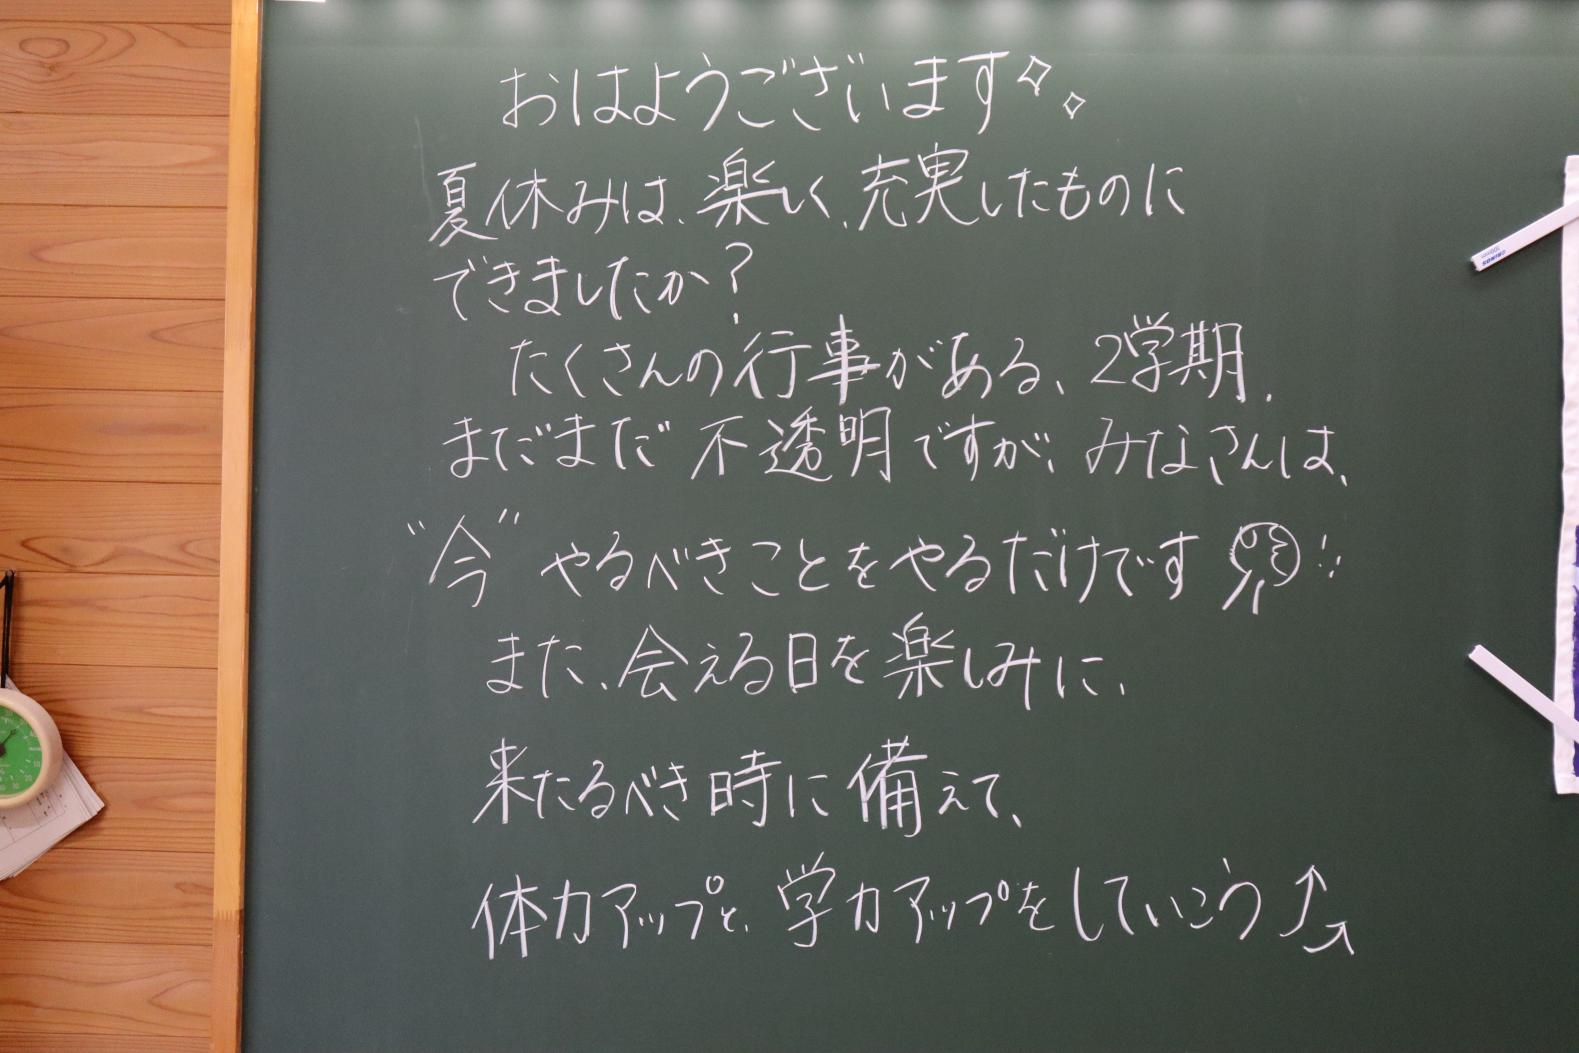 おはようございます
夏休みは、楽しく、充実したものに
できましたか？
たくさんの行事がある、2学期.
まだまだ不透明ですが、みなさんは、
"今"やるべきことをやるだけです
また、会える日を楽しみに、
来たるべき時に備えて、
体力アップと、学力アップをしていこう